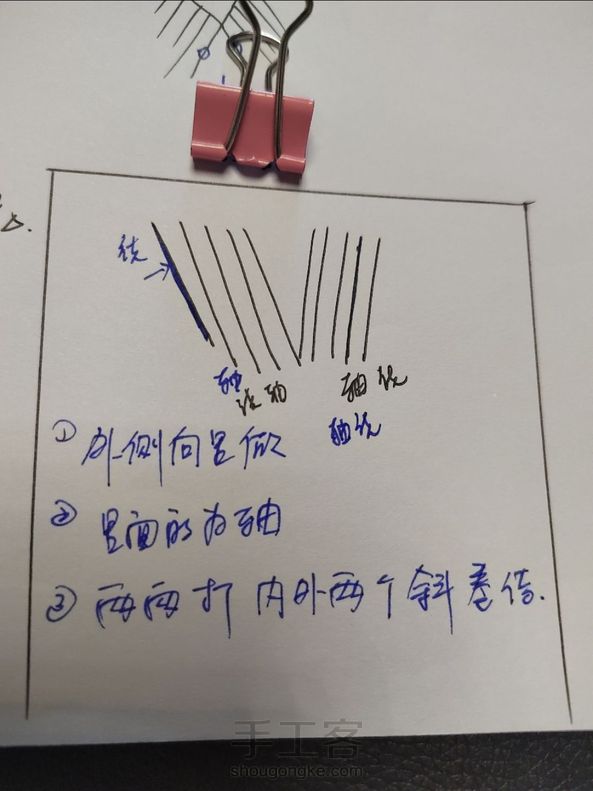 绕
轴 绕 轴 轴 绕
轴 绕
① 外侧向里做
② 里面的为轴
③ 两两打 内外两个斜卷结.
手工客
shougongke.com